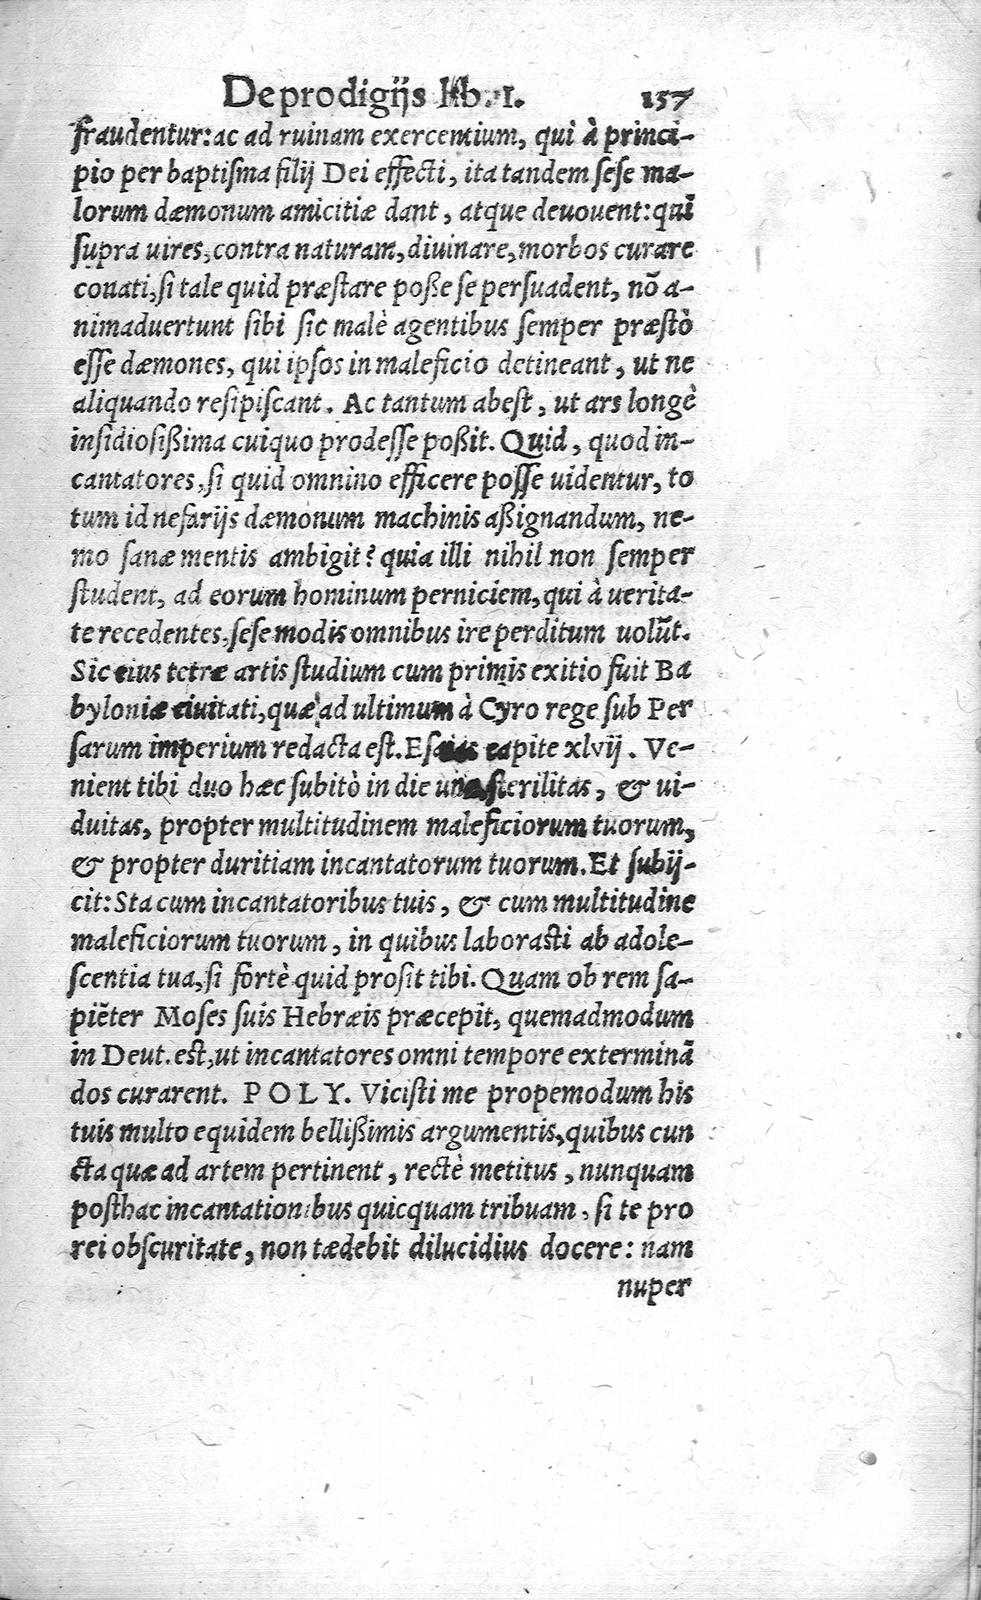 De prodigijs lib. I. 157
fraudentur: ac ad ruinam exercentium, qui à princi-
pio per baptiſma filij Dei effecti, ita tandem ſeſe ma-
lorum dæmonum amicitiæ dant, atque deuouent: qui
ſupra uires, contra naturam, diuinare, morbos curare
conati, ſi tale quid præſtare poße ſe perſuadent, nō a-
nimaduertunt ſibi ſic malè agentibus ſemper præſtò
eſſe dæmones, qui ipſos in maleficio detineant, ut ne
aliquando reſipiſcant. Ac tantum abeſt, ut ars longè
inſidioſißima cuiquo prodeſſe poßit. Quid, quod in-
cantatores, ſi quid omnino efficere poſſe uidentur, to
tum id nefarijs dæmonum machinis aßignandum, ne-
mo ſanæ mentis ambigit? quia illi nihil non ſemper
ſtudent, ad eorum hominum perniciem, qui à uerita-
te recedentes, ſeſe modis omnibus ire perditum uolūt.
Sic eius tetræ artis ſtudium cum primis exitio fuit Ba
byloniæ ciuitati, quæ ad ultimum à Cyro rege ſub Per
ſarum imperium redacta eſt. Eſaias capite xlvij. Ve-
nient tibi duo hæc ſubitò in die una, ſterilitas, & ui-
duitas, propter multitudinem maleficiorum tuorum,
& propter duritiam incantatorum tuorum. Et ſubij-
cit: Sta cum incantatoribus tuis, & cum multitudine
maleficiorum tuorum, in quibus laboraſti ab adole-
ſcentia tua, ſi fortè quid proſit tibi. Quam ob rem ſa-
piēter Moſes ſuis Hebræis præcepit, quemadmodum
in Deut. eſt, ut incantatores omni tempore exterminā
dos curarent. POLY. Viciſti me propemodum his
tuis multo equidem bellißimis argumentis, quibus cun
cta quæ ad artem pertinent, rectè metitus, nunquam
poſthac incantationibus quicquam tribuam, ſi te pro
rei obſcuritate, non tædebit dilucidius docere: nam
nuper